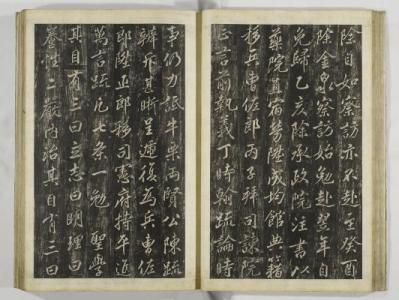 除自如察訪亦不赴癸酉
除金泉察訪始勉赴翌年自
免歸乙亥除承政院注書以
藥院直宿勞陞成均館典籍
移兵曹佐郎丙子拜司諫院
正言前執義丁時翰疏論時
事仍力詆牛栗両賢公陳疏
辨斥甚晰呈遞復為兵曹佐
郎陞正郎移司憲府持平進
萬言疏凡七条一勉 聖學
其目有三曰立志曰明理曰
養性二嚴內治其目有三曰